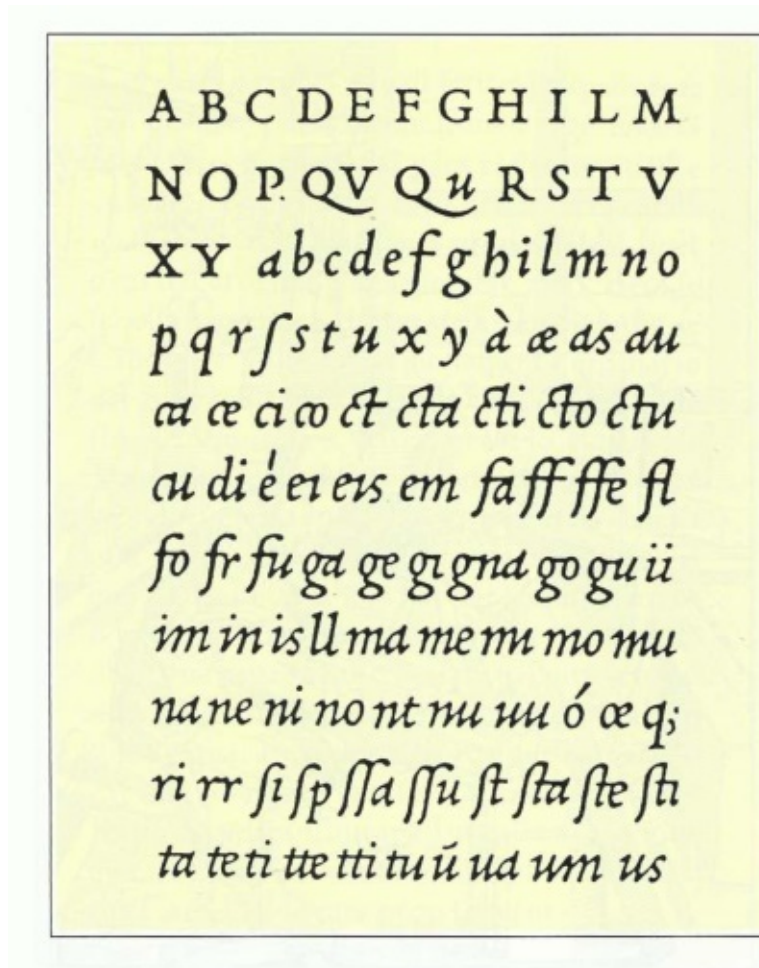 A B C D E F G H I L M
N O P. QV Qu R S T V
X Y a b c d e f g h i l m n o
p q r ſ s t u x y à æ as au
ca ce ci co ct cta cti cto ctu
cu di é ei eis em fa ff ffe fl
fo fr fu ga ge gi gna go gu ii
im in is ll ma me mi mo mu
na ne ni no nt nu uu ó œ q;
ri rr ſi ſp ſſa ſſu ſt ſta ſte ſti
ta te ti tte tti tu ũ ua um us